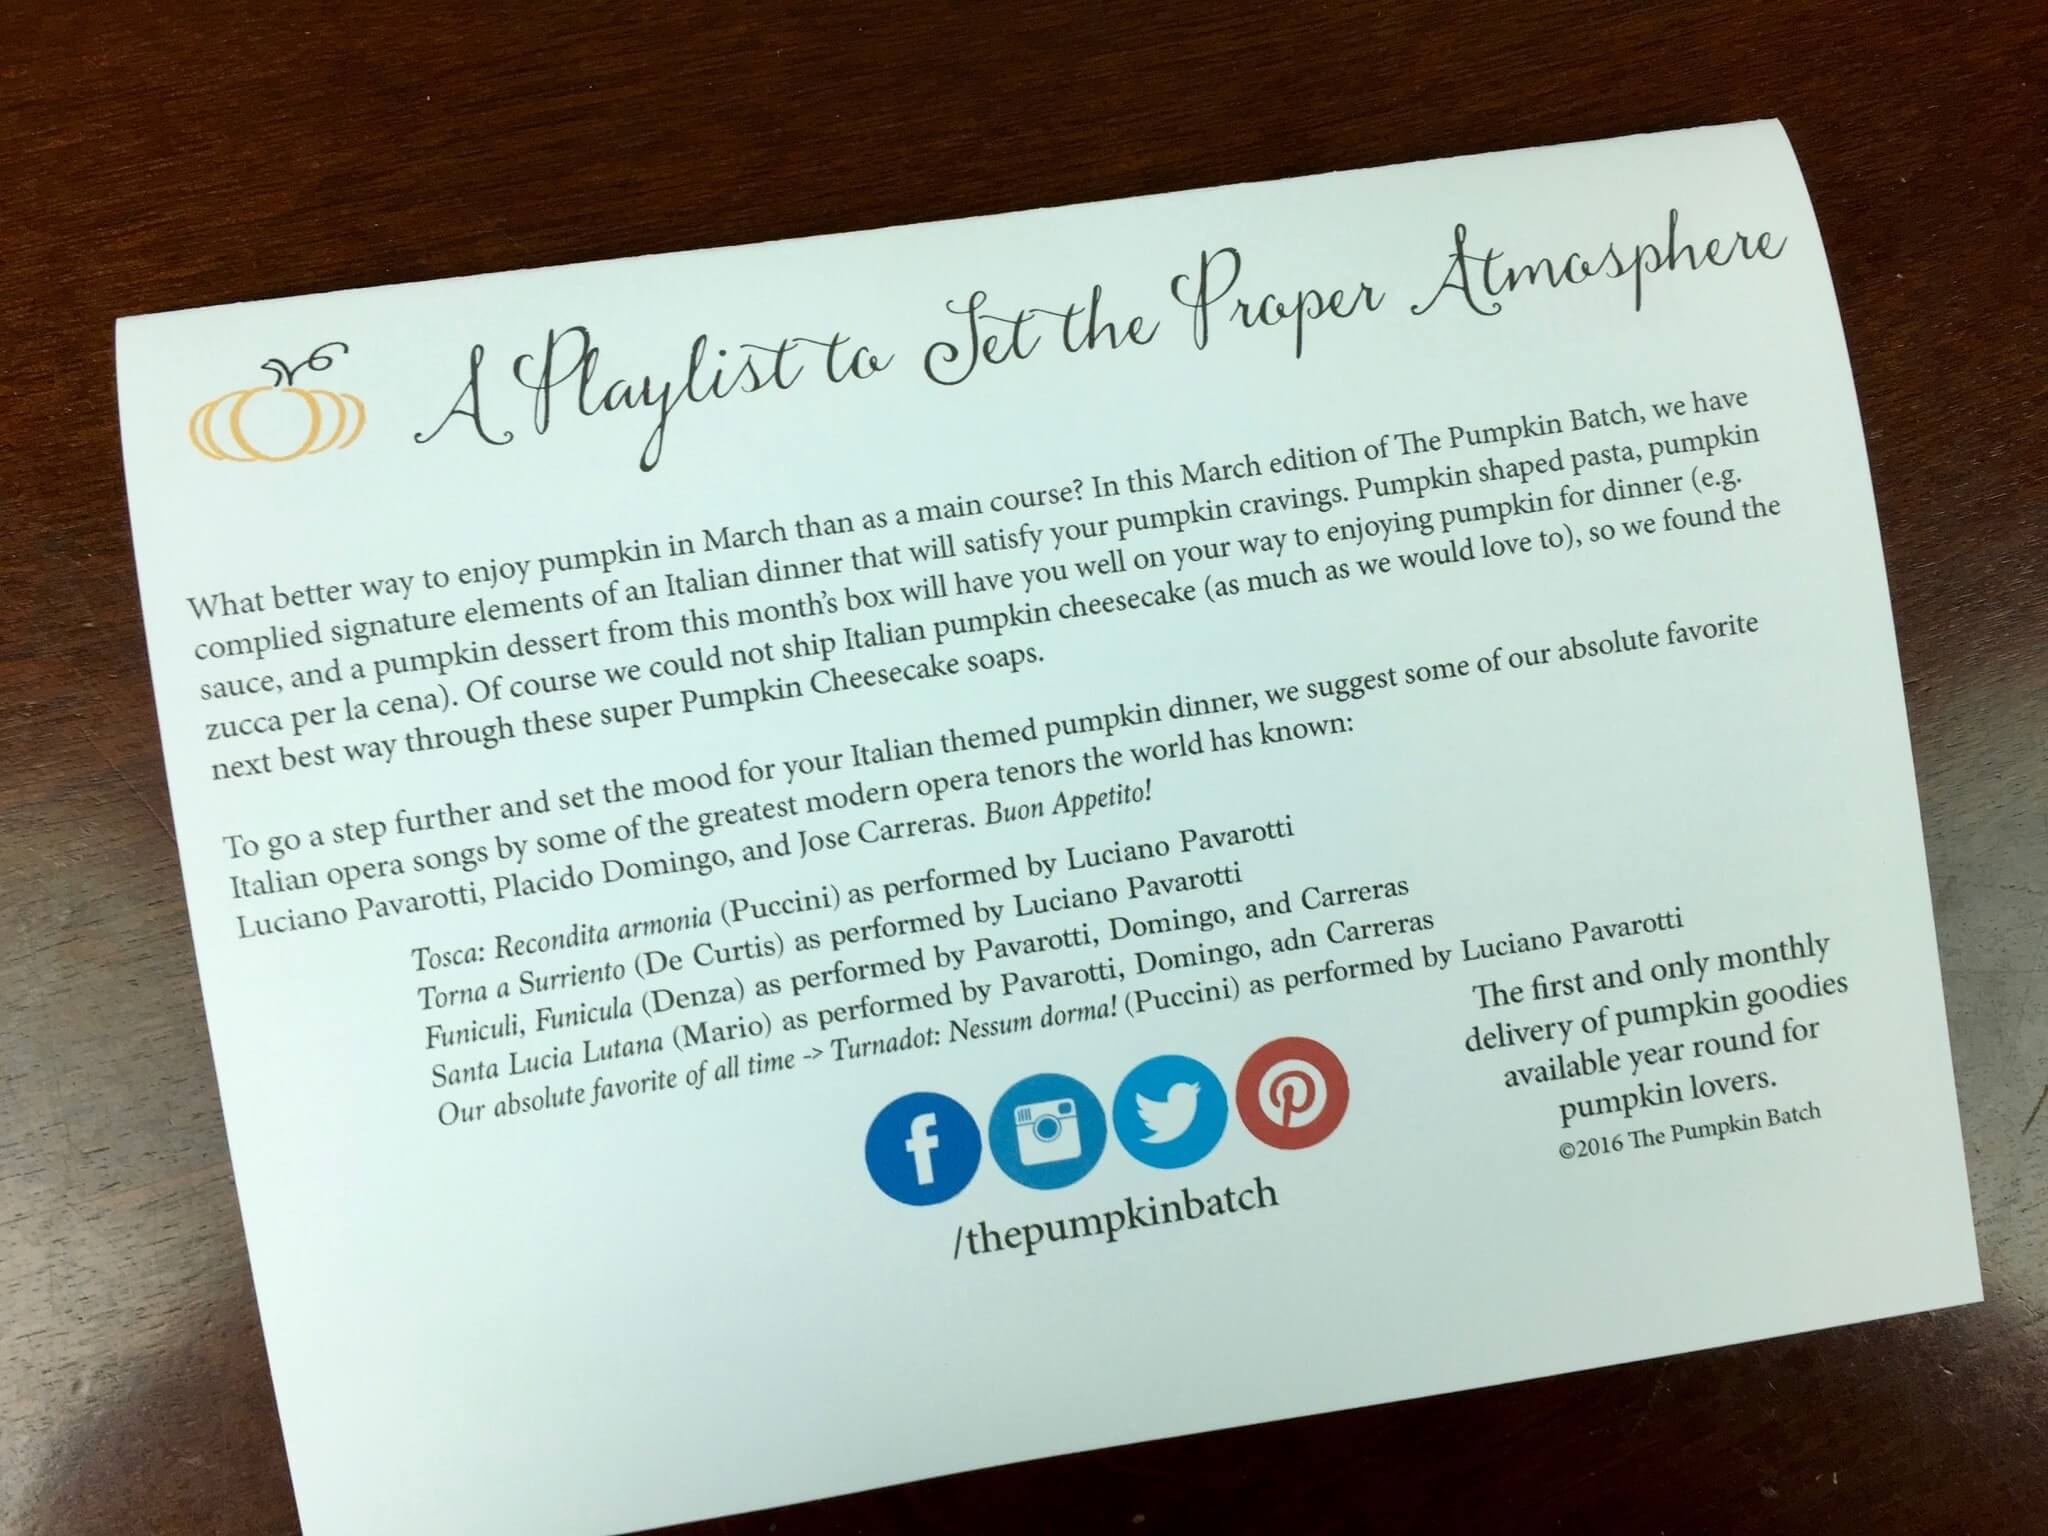 A Playlist to Set the Proper Atmosphere
What better way to enjoy pumpkin in March than as a main course? In this March edition of The Pumpkin Batch, we have
complied signature elements of an Italian dinner that will satisfy your pumpkin cravings. Pumpkin shaped pasta, pumpkin
sauce, and a pumpkin dessert from this month's box will have you well on your way to enjoying pumpkin for dinner (e.g.
zucca per la cena). Of course we could not ship Italian pumpkin cheesecake (as much as we would love to), so we found the
next best way through these super Pumpkin Cheesecake soaps.
To go a step further and set the mood for your Italian themed pumpkin dinner, we suggest some of our absolute favorite
Italian opera songs by some of the greatest modern opera tenors the world has known:
Luciano Pavarotti, Placido Domingo, and Jose Carreras. Buon Appetito!
Tosca: Recondita armonia (Puccini) as performed by Luciano Pavarotti
Torna a Surriento (De Curtis) as performed by Luciano Pavarotti
Funiculi, Funicula (Denza) as performed by Pavarotti, Domingo, and Carreras
Santa Lucia Lutana (Mario) as performed by Pavarotti, Domingo, adn Carreras
Our absolute favorite of all time -> Turnadot: Nessum dorma! (Puccini) as performed by Luciano Pavarotti
The first and only monthly
delivery of pumpkin goodies
available year round for
pumpkin lovers.
©2016 The Pumpkin Batch
/thepumpkinbatch